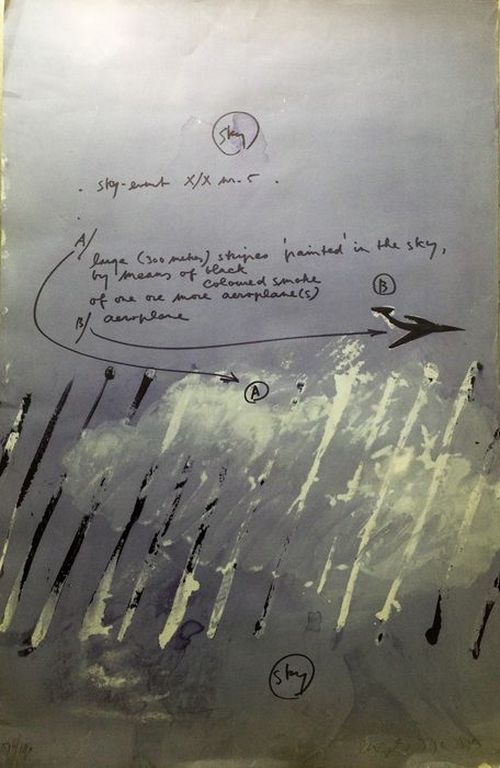 sky
sky-event X/X nr. 5.
A/
large (300 metres) stripes 'painted' in the sky,
by means of black
coloured smoke
of one ore more aeroplane(s)
B
B/ aeroplane
A
sky